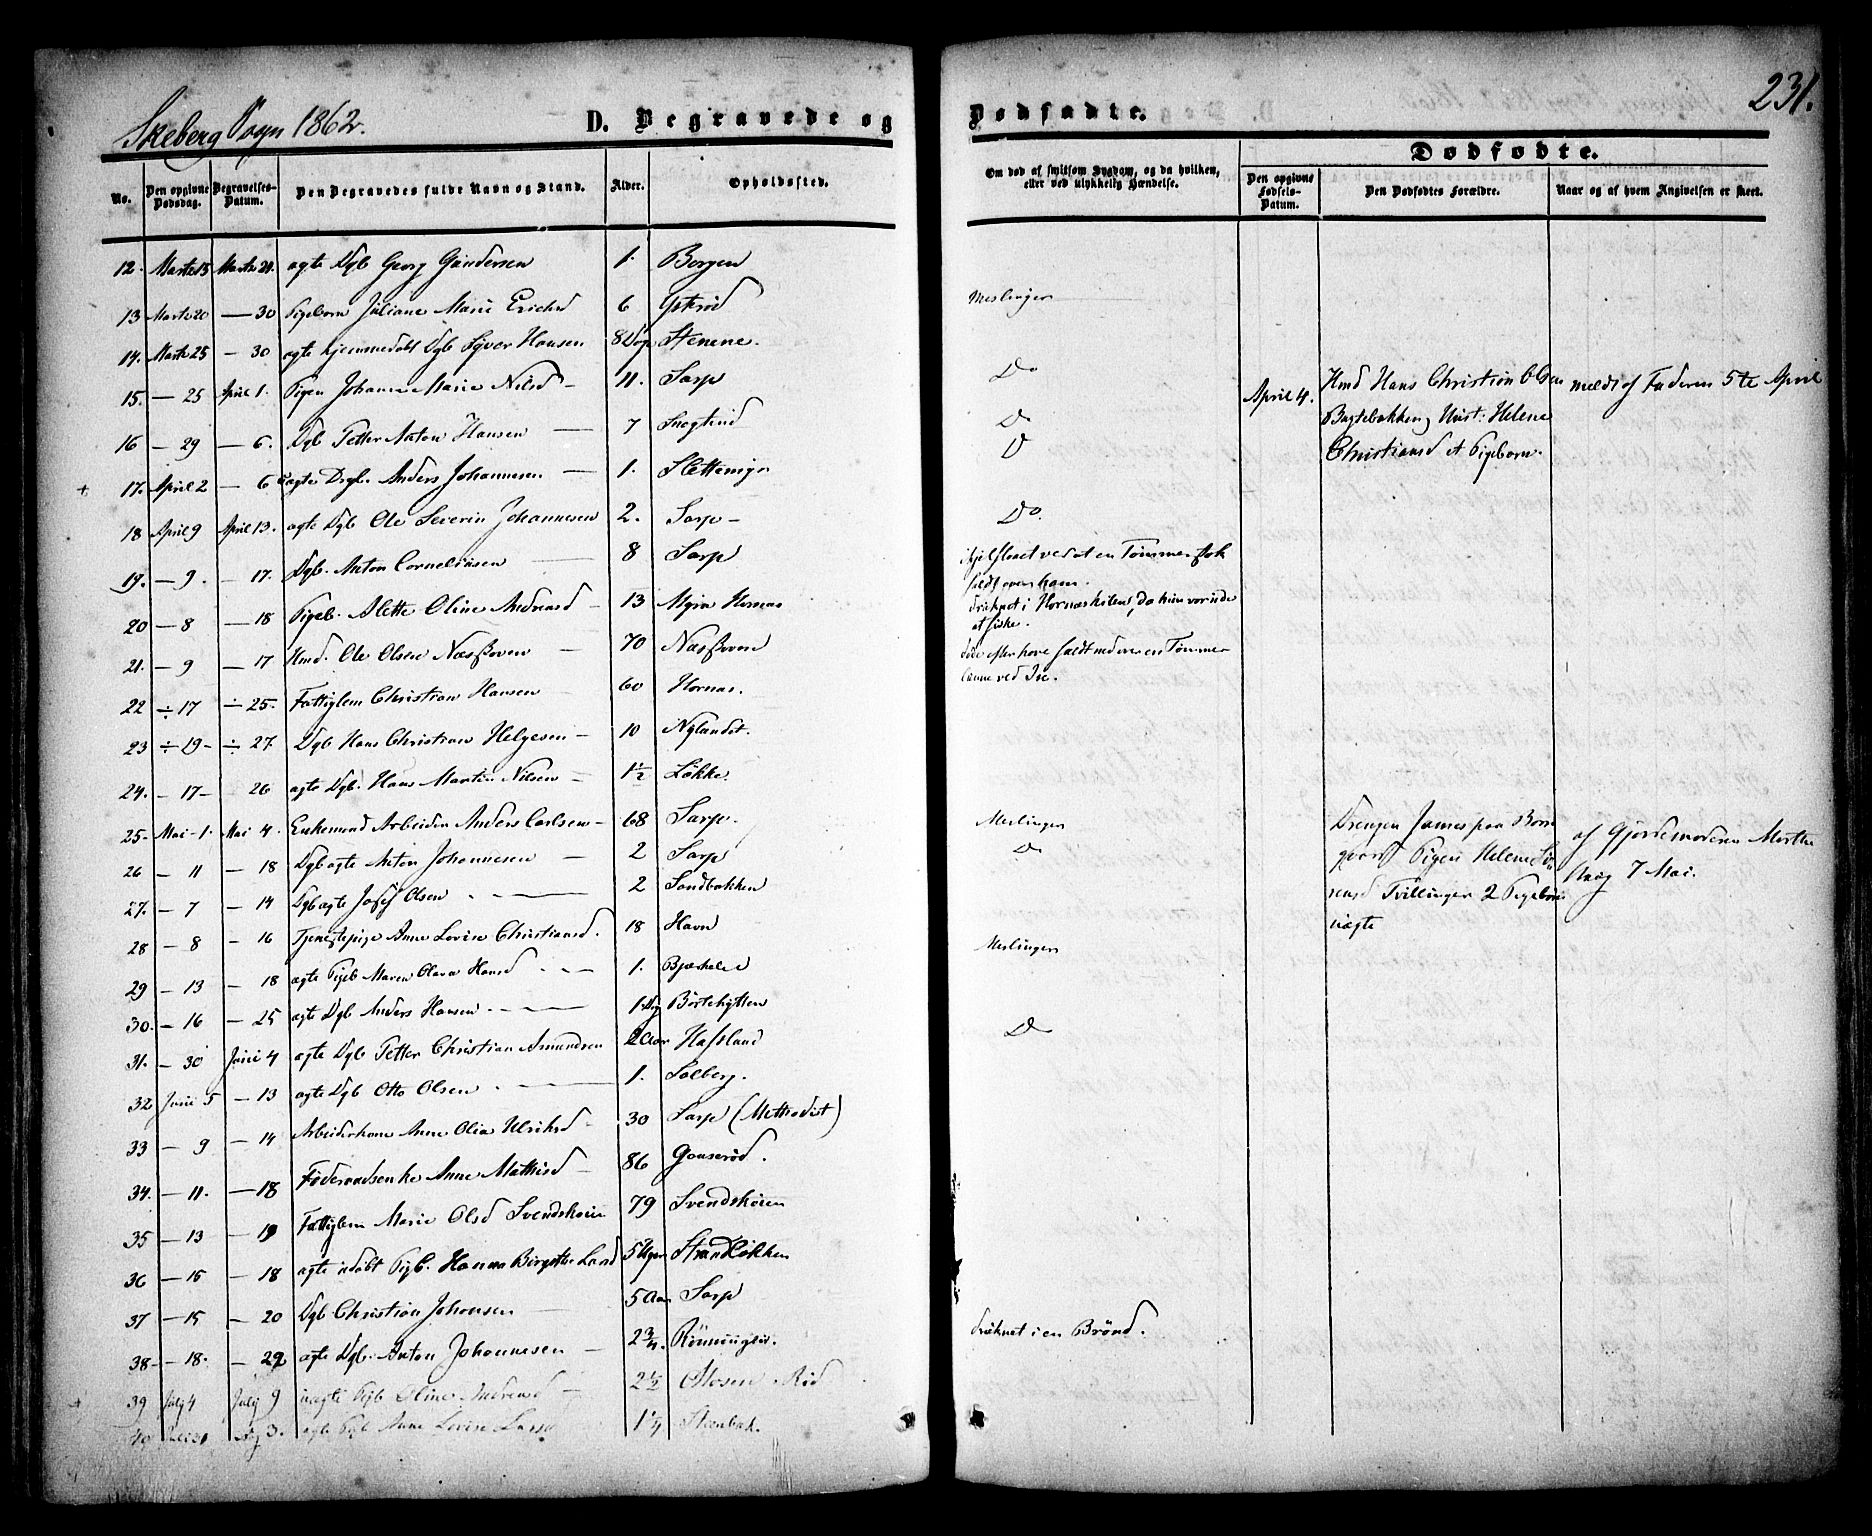 Skeberg Sogn 1862.
D. Begravede og Dødfødte.
231.
No.
Den opgivne Dødsdag.
Begravelses-Datum.
Den Begravedes fulde Navn og Stand.
Alder.
Opholdssted.
Om død af smitsom Sygdom, og da hvilken, eller ved ulykkelig Hændelse.
Dødfødte.
Den opgivne Fødsels-Datum.
Den Dødfødtes Forældre.
Naar og af hvem Angivelsen er skeet.
12. Marts 15 Marts 21. ægte Dgb Georg Gundersen 1. Borgen
13 Marts 20 — 30 Pigebarn Juliane Marie Ericksd 6 Ystrød Meslinger
14. Marts 25 — 30 ægte hjemmedøbt Dgb Syver Hansen 8 Dage Stenene.
15. — 25 April 1. Pigen Johanne Marie Nilsd — 11. Sarp Do
16 — 29 — 6. Dgb Petter Anton Hansen — 7 Do
17. April 2 — 6 uægte Drgb. Anders Johannesen — 1. Slettenign D
18 April 9 April 13. ægte Dgb Ole Severin Johannesen 2. Sarp — Do.
19. — 9. — 17. Dgb. Anton Corneliusen 8 Sarp ihjelslaaet ved at en Tømmerstok faldt over ham.
20 — 8 — 18 Pigeb. Alette Oline Andreasd — 13 Myra Hornæs druknet i Hornæskilen, da hun var ude at fiske.
21. — 9 — 17 Hmd. Ole Olsen Næsskoven — 70 Næsskoven døde efter have faldt ned over en Tømmerlænne ved Ise.
22 ÷ 17 ÷ 25. Fattiglem Christian Hansen — 60 Hornæs.
23 ÷ 19 — ÷ 27. Dgb Hans Christian Helgesen — 10 Nylandet.
24. — 17 — 26 ægte Dgb. Hans Martin Nilsen — 1½ Løkke.
25. Mai — 1. Mai 4. Enkemand Arbeider Anders Carlsen — 68 Sarp. Meslinger
26 — 11 — 18 Dgb ægte Anton Johannesen — 2 Sarp D
27. — 7 — 14 Dgb ægte Josef Olsen — 2 Sandbakken
28 — 8 — 16 Tjenestepige Anne Lovise Christiansd. 18 Havn
29 — 13 — 18 ægte Pigeb Maren Olava Hansd 1. Meslinger
30. — 16 — 25 ægte Dgb Anders Hansen 1 Dag Børtehytten
31. — 30 Juni 4 ægte Dgb Petter Christian Amundsen 2 Aar Hafslund D
32 Juni 5 — 13 ægte Dgb Otto Olsen 1. Solberg.
33 — 9 — 14 Arbeiderkone Anne Olia Ulriksd 30 Sarp (Methodist)
34. — 11. — 18 Føderaadsenke Anne Mathisd — 86 Gonserød.
35 — 13 — 19 Fattiglem Marie Olsd Svendskøien 79 Svendskøien
36 — 15 — 18 ægte udøbt Pigb. Hanna Birgitte Larsd 5 Uger Strandløkken
37 — 15 — 20 Dgb. Christian Johansen — 5 Aar Sarp
38. — 18. — 22 ægte Dgb. Anton Johannesen — 2¾. Rønningen. druknet i en Brønd.
39 July 4 July 9 uægte Pigb Oline Andreasd — 2½ Olosen Rød
40 Juli 31 Aug 3. ægte Pgb Anne Lovise Larsd 1¼ Stenbæk.
April 4. Hmd Hans Christian Olsen
Hust: Helene
Christiansd et Pigebarn.
meldt af Faderen 5te April
Drengen James paa Borregaard Pigen Helene Sørensd Tvillinger 2 Pigebørn uægte
af Gjordemoderen Marthe
7 Mai.